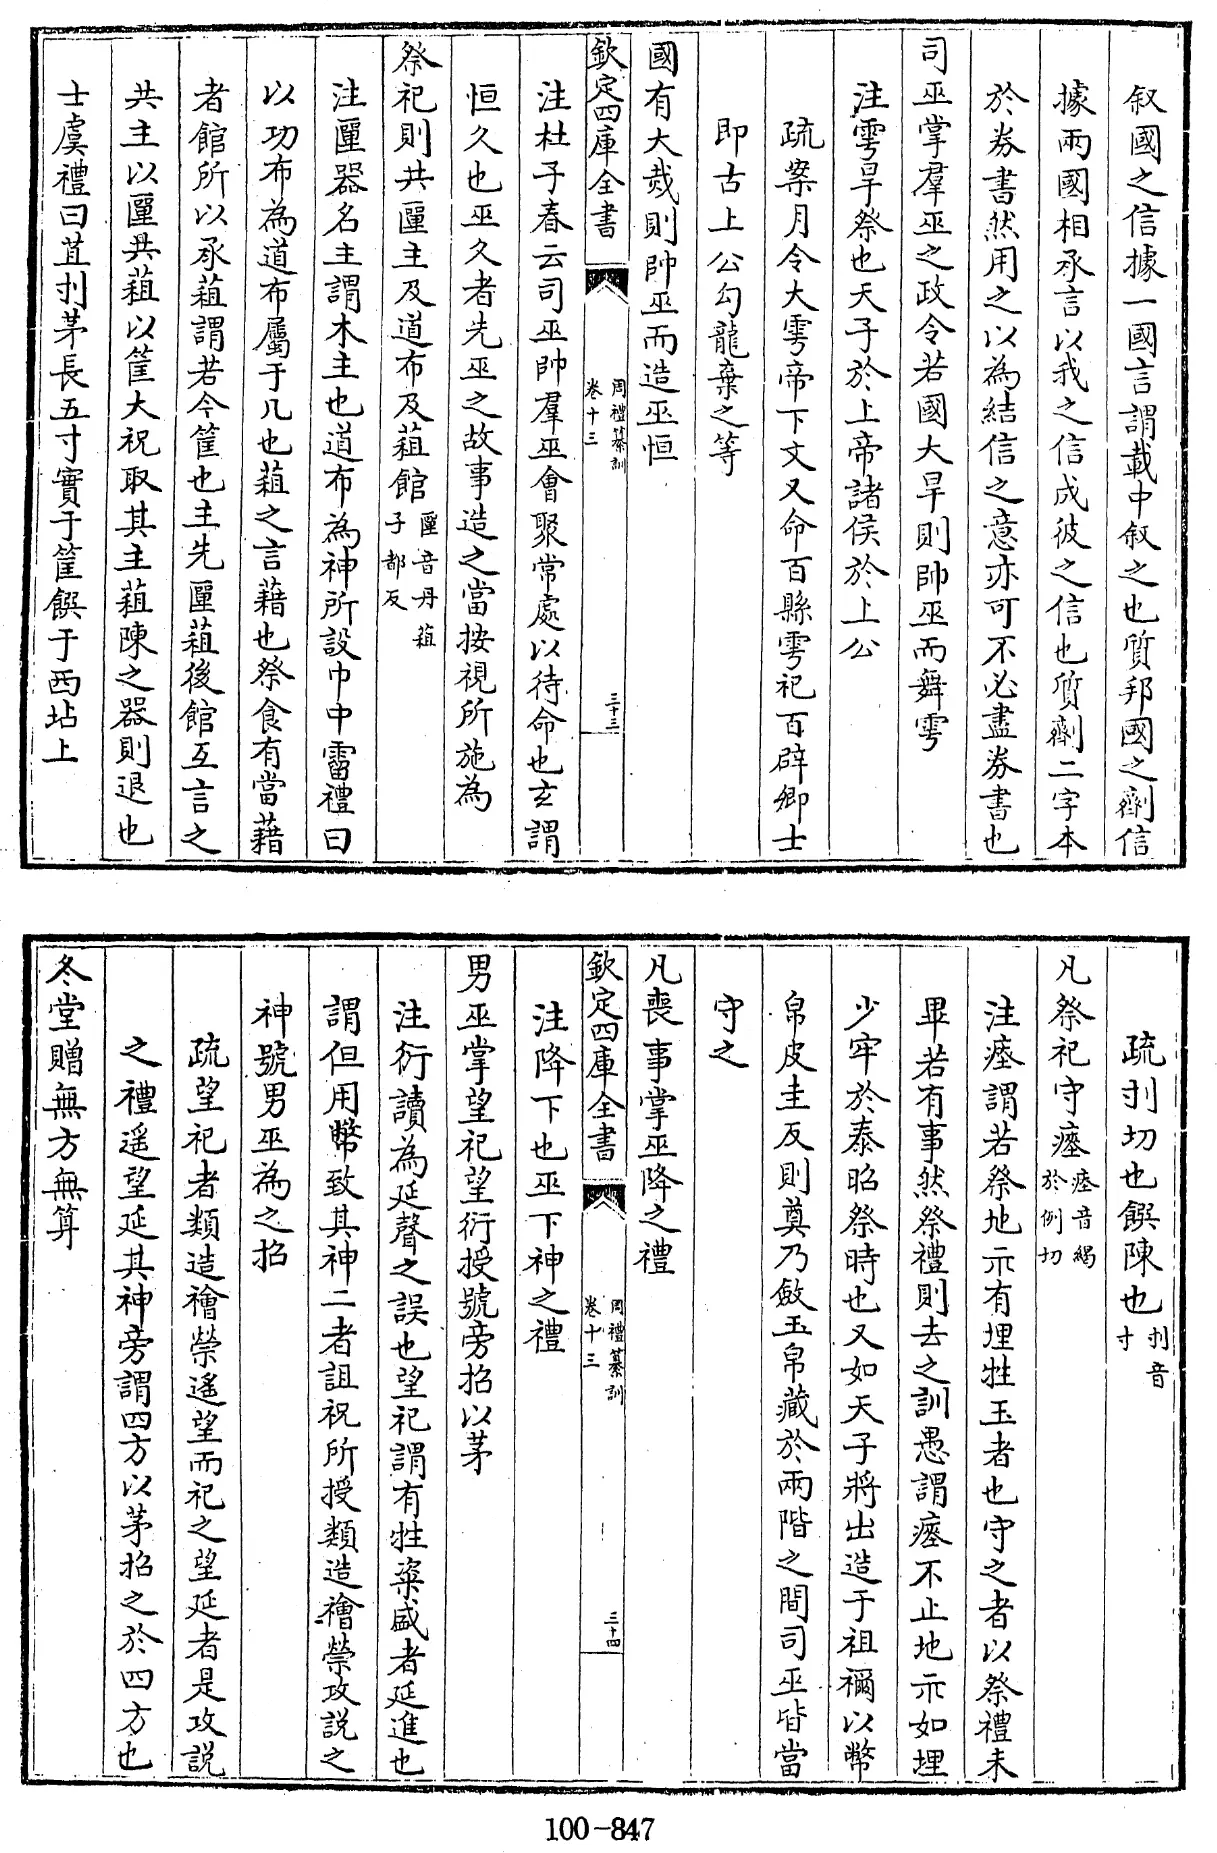 叙國之信據一國言謂載中叙之也質邦國之劑信
據兩國相承言以我之信成彼之信也質劑二字本
於券書然用之以為結信之意亦可不必盡券書也
司巫掌羣巫之政令若國大旱則帥巫而舞雩
注雩旱祭也天子於上帝諸侯於上公
疏案月令大雩帝下文又命百縣雩祀百辟卿士
即古上公勾龍棄之等
國有大烖則帥巫而造巫恒
欽定四庫全書
周禮纂訓
卷十三
三十三
注杜子春云司巫帥羣巫會聚常處以待命也玄謂
恒久也巫久者先巫之故事造之當按視所施為
祭祀則共匰主及道布及蒩館匰音丹蒩
子都反
注匰器名主謂木主也道布為神所設巾中霤禮曰
以功布為道布屬于几也蒩之言藉也祭食有當藉
者館所以承蒩謂若今筐也主先匰蒩後館互言之
共主以匰共蒩以筐大祝取其主蒩陳之器則退也
士虞禮曰苴刌茅長五寸實于筐饌于西坫上
疏刌切也饌陳也刌音
寸
凡祭祀守瘞瘞音縐
於例切
注瘞謂若祭地示有埋牲玉者也守之者以祭禮未
畢若有事然祭禮則去之訓愚謂瘞不止地示如埋
少牢於泰昭祭時也又如天子將出造于祖禰以幣
帛皮圭反則奠乃斂玉帛藏於兩階之間司巫皆當
守之
凡喪事掌巫降之禮
欽定四庫全書
周禮纂訓
卷十三
三十四
注降下也巫下神之禮
男巫掌望祀望衍授號旁招以茅
注衍讀為延聲之誤也望祀謂有牲粢盛者延進也
謂但用幣致其神二者詛祝所授類造禬禜攻説之
神號男巫為之招
疏望祀者類造禬禜遥望而祀之望延者是攻説
之禮遥望延其神旁謂四方以茅招之於四方也
冬堂贈無方無算
100-847